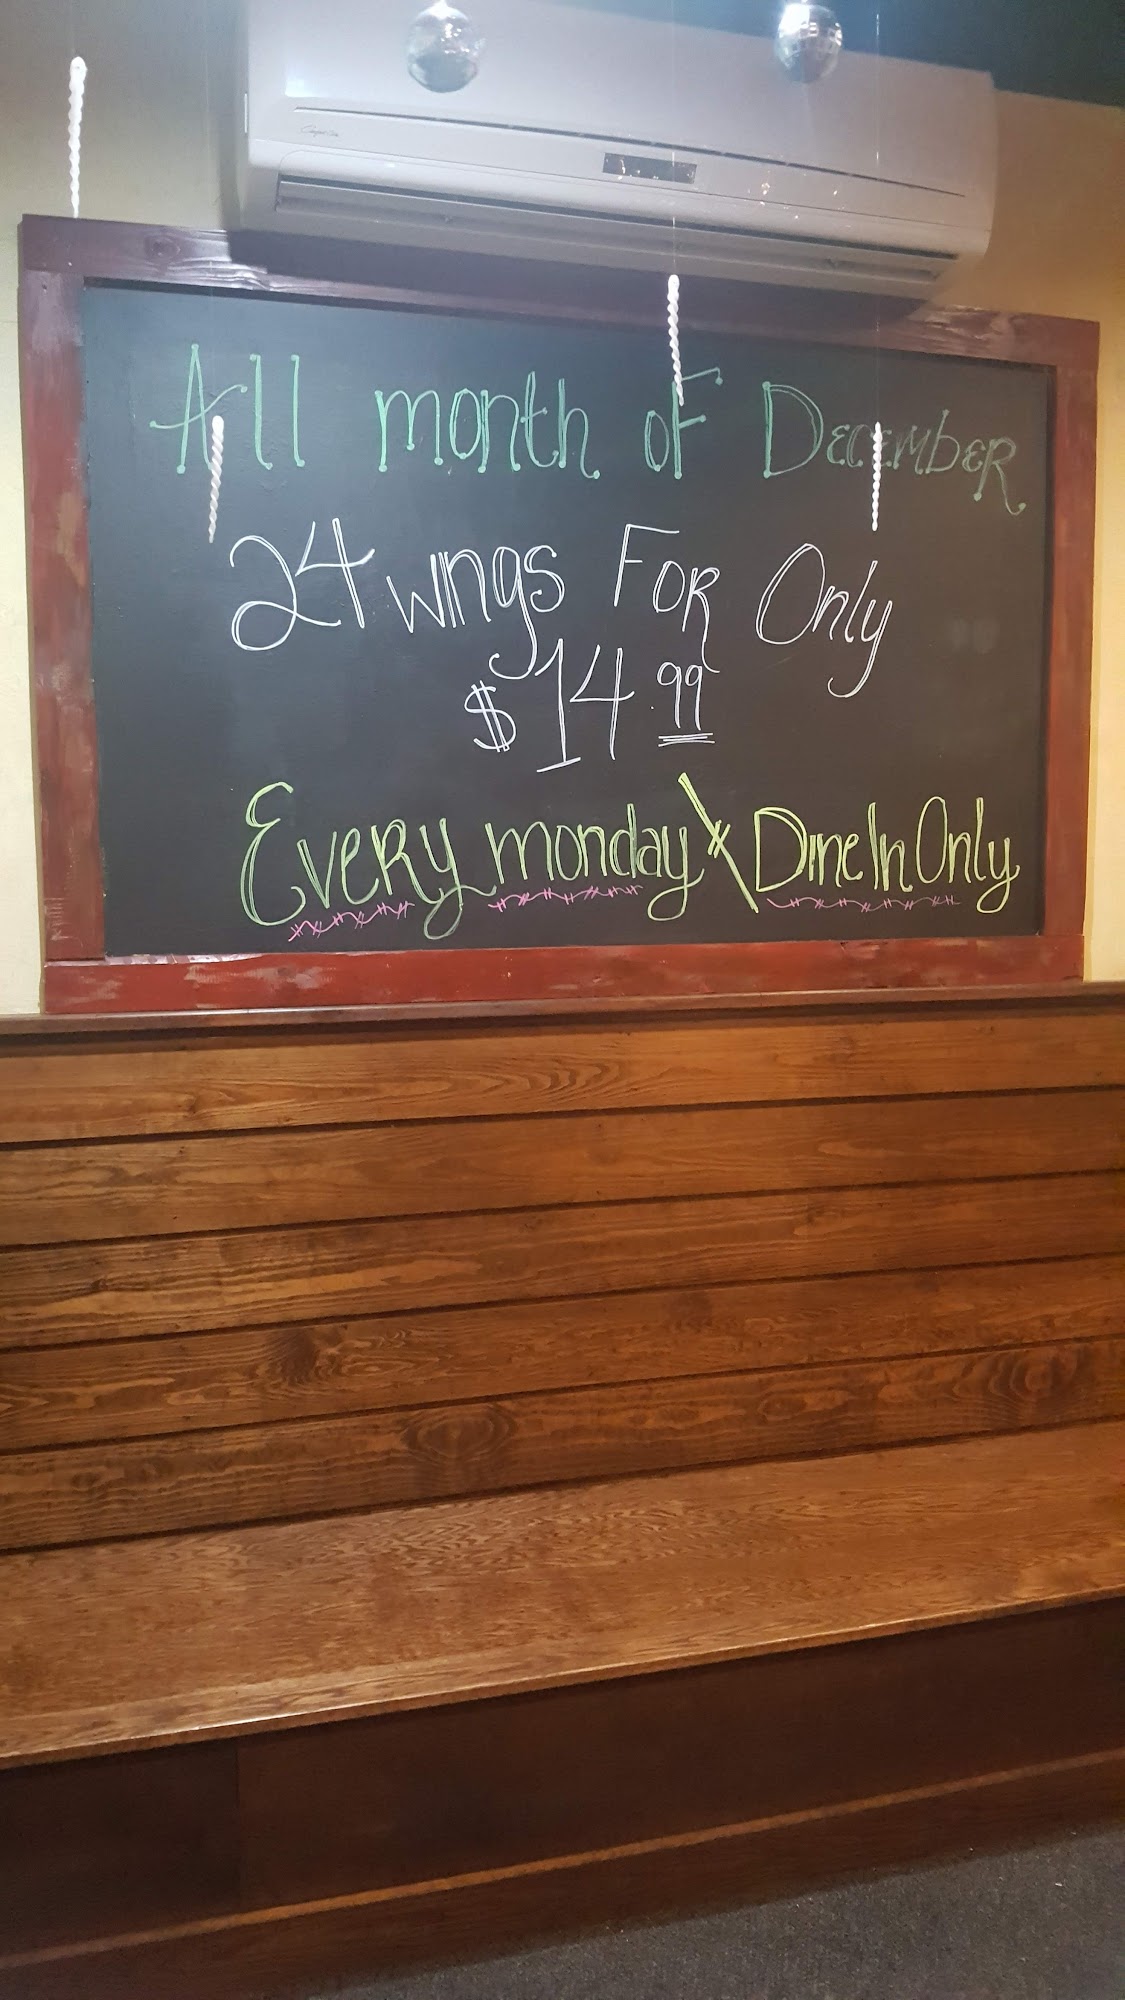 All month of December
24 wings For Only
$14.99
Every monday \ Dine In Only